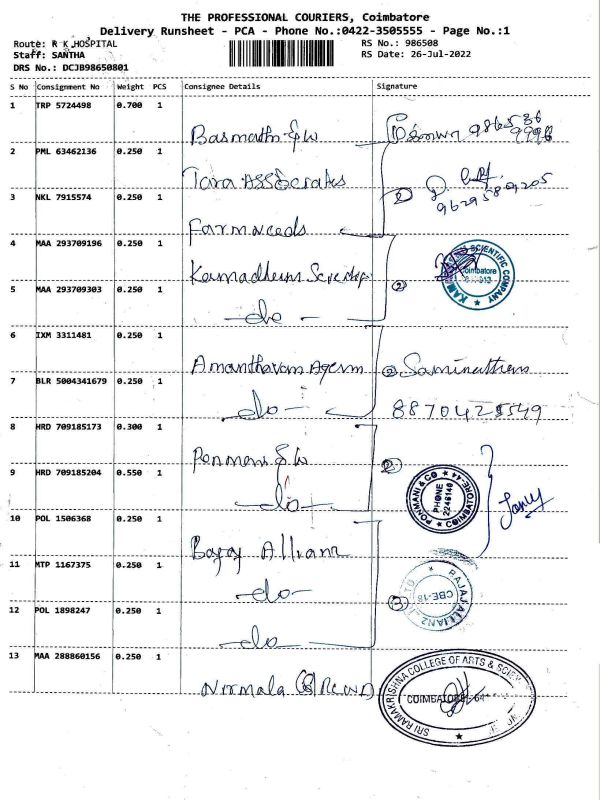 THE PROFESSIONAL COURIERS, Coimbatore
Delivery Runsheet - PCA - Phone No.:0422-3505555 - Page No.:1
Route: R K HOSPITAL
RS No.: 986508
Staff: SANTHA
RS Date: 26-Jul-2022
DRS No.: DCJB98650801
S No Consignment No Weight PCS Consignee Details Signature
1 TRP 5724498 0.700 1
2 PML 63462136 0.250 1
Tara Associates
3 NKL 7915574 0.250 1
Farm needs
4 MAA 293709196 0.250 1
SCIENTIFIC COMPANY
Coimbatore
5 MAA 293709303 0.250 1
-do-
6 IXM 3311481 0.250 1
7 BLR 5004341679 0.250 1
-do-
8 HRD 709185173 0.300 1
9 HRD 709185204 0.550 1
-do-
PONMANI & CO
PHONE
2246140
COIMBATORE-44
10 POL 1506368 0.250 1
Bajaj Allianz
11 MTP 1167375 0.250 1
-do-
BAJAJ ALLIANZ
CBE-18
12 POL 1898247 0.250 1
-do-
13 MAA 288860156 0.250 1
Nirmala
SRI RAMAKRISHNA COLLEGE OF ARTS &
COIMBATORE